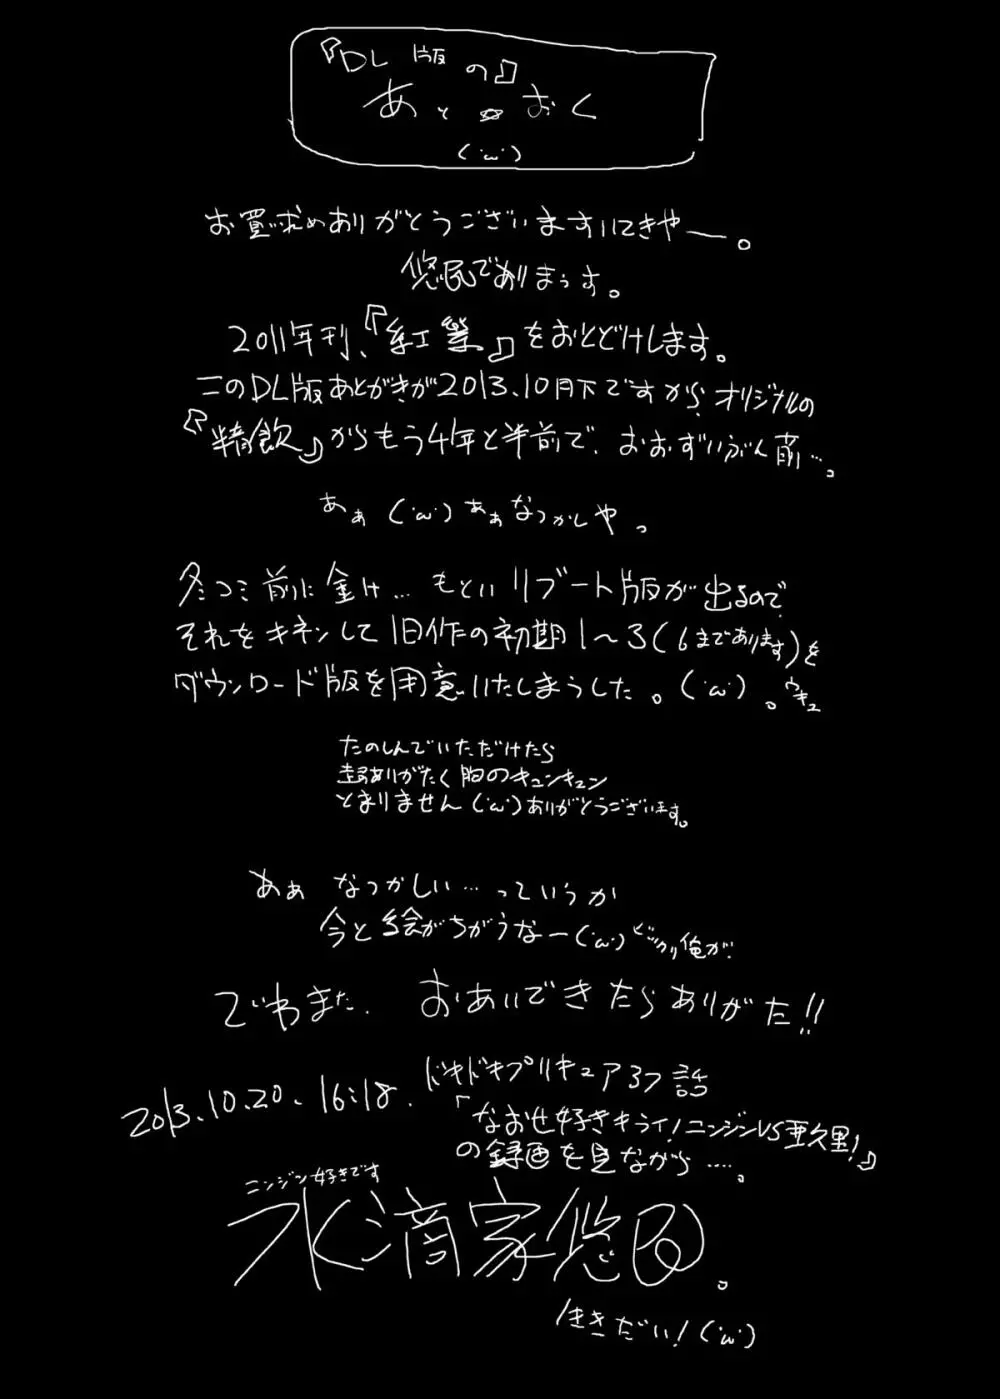 『DL版の』
あと
おく
(´ω`)
お買求めありがとうございますいてきやー。
悠民でありまぅす。
2011年刊、『紅業』をおとどけします。
このDL版あとがきが2013.10月下ですから、オリジナルの
『精飲』からもう4年と半前で、おおずいぶん前…。
あぁ (´ω`) あぁ なつかしや。
冬コミ前に金け…もといリブート版が出るので
それをキネンして旧作の初期1〜3(6まであります)を
ダウンロード版を用意いたしまぅした。(´ω`)。ウキュ
たのしんでいただけたら
ありがたく胸のキュンキュン
とまりません(´ω`)ありがとうございます。
あぁ なつかしい…っていうか
今と絵がちがうなー(´ω`)ビックリ俺が!
でわまた. おあいできたらありがた!!
2013.10.20. 16:18. ドキドキプリキュア37話
「なおせ好きキライ!ニンジンVS亜久里!」
の録画を見ながら…。
ニンジン好きです
水滴家悠民。
生きだい!(´ω`)